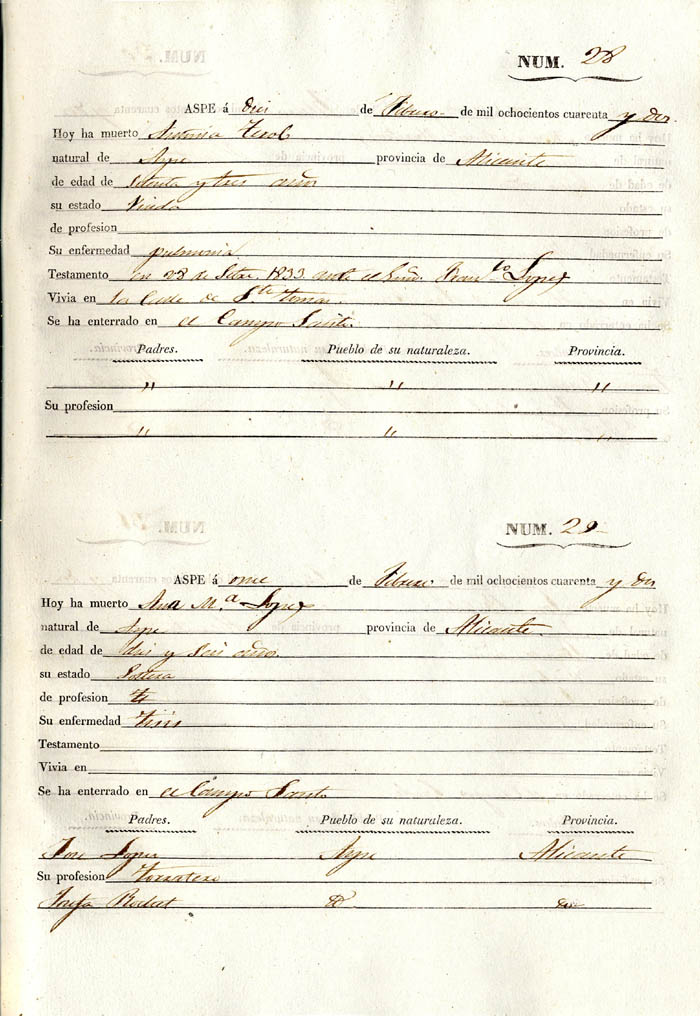 NUM. 28
ASPE á diez de Febrero de mil ochocientos cuarenta y dos
Hoy ha muerto Antonia Terol
natural de Aspe provincia de Alicante
de edad de setenta y tres años
su estado Viuda
de profesion
Su enfermedad pulmonia
Testamento en 28 de Setbre 1833 ante el Franco Lopez
Vivia en la Calle de Sto Tomas
Se ha enterrado en el Campo Santo
Padres. Pueblo de su naturaleza. Provincia.
" " "
Su profesion
" " "
NUM. 29
ASPE á once de Febrero de mil ochocientos cuarenta y dos
Hoy ha muerto Ana M.a Lopez
natural de Aspe provincia de Alicante
de edad de diez y seis años
su estado Soltera
de profesion
Su enfermedad Tisis
Testamento
Vivia en
Se ha enterrado en el Campo Santo
Padres. Pueblo de su naturaleza. Provincia.
Jose Lopez Aspe Alicante
Su profesion
Josefa